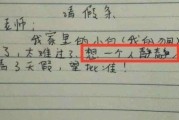 请假条
老师：
我家里的小白(我的
了，太难过了，想一个人静静
天假，望批准！